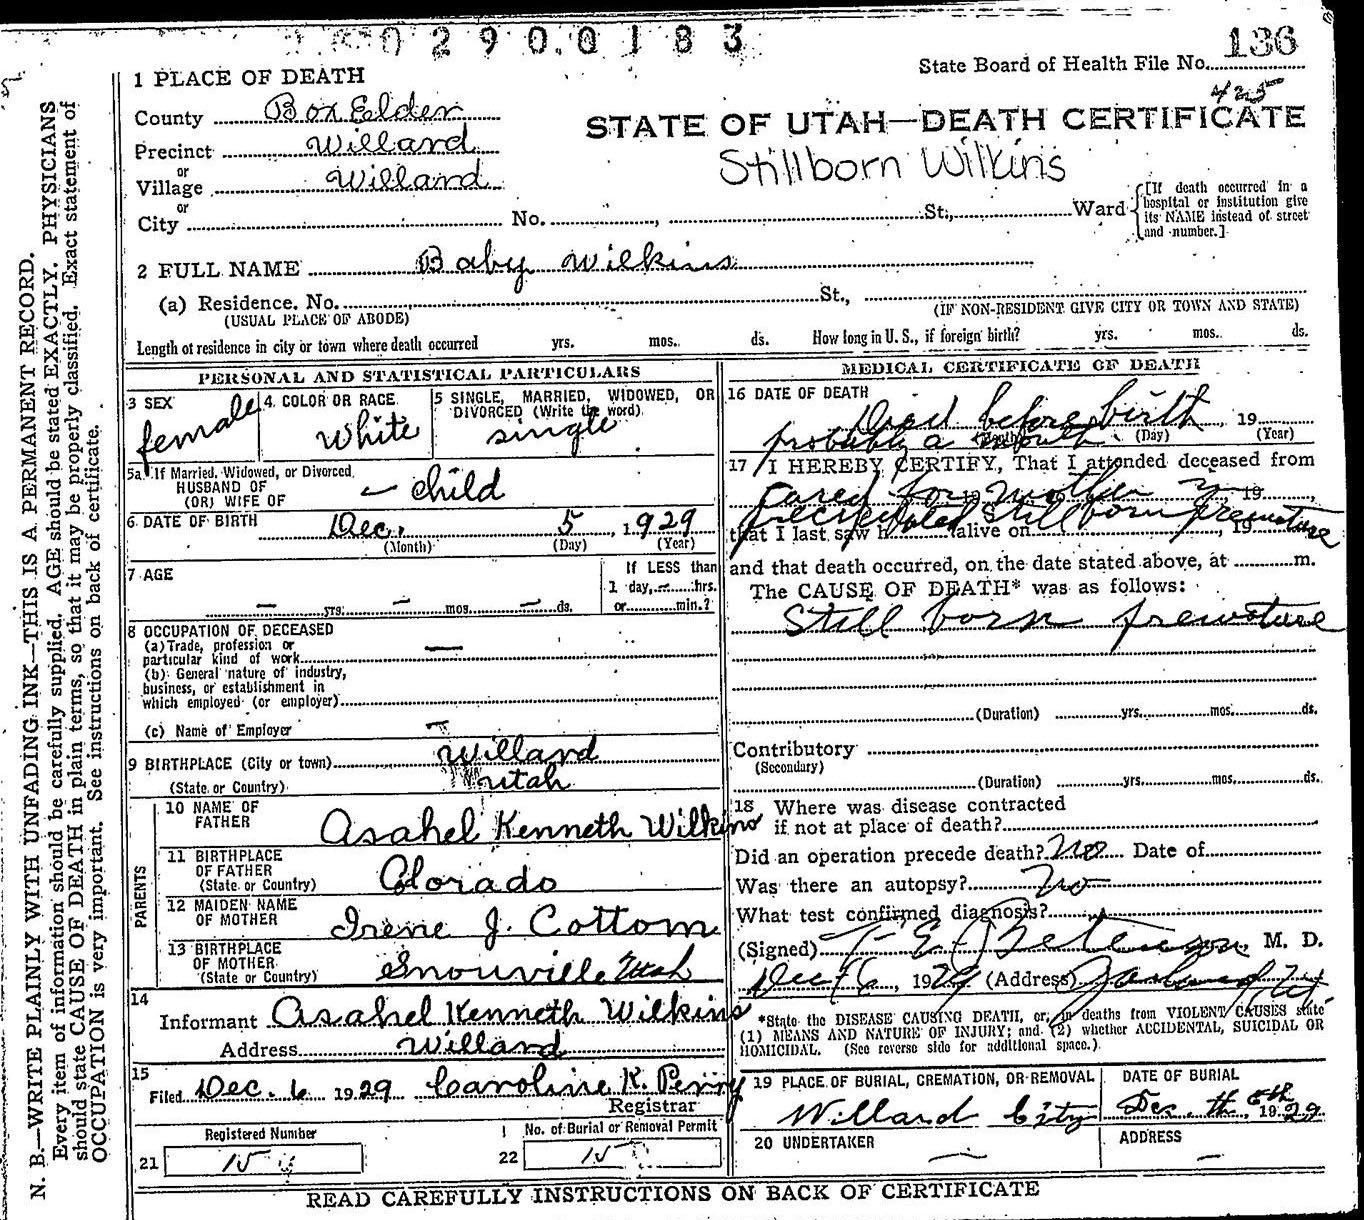 0290.0183
State Board of Health File No. 136
425
1 PLACE OF DEATH
County Box Elder
STATE OF UTAH—DEATH CERTIFICATE
Precinct Willard
Stillborn Wilkins
or
Village Willard
or
City No. , St., Ward
[If death occurred in a hospital or institution give its NAME instead of street and number.]
2 FULL NAME Baby Wilkins
(a) Residence. No. St.,
(USUAL PLACE OF ABODE) (IF NON-RESIDENT GIVE CITY OR TOWN AND STATE)
Length of residence in city or town where death occurred yrs. mos. ds. How long in U. S., if foreign birth? yrs. mos. ds.
PERSONAL AND STATISTICAL PARTICULARS
3 SEX 4 COLOR OR RACE 5 SINGLE, MARRIED, WIDOWED, OR
DIVORCED (Write the word)
female White single
5a If Married, Widowed, or Divorced
HUSBAND OF
(OR) WIFE OF — child
6 DATE OF BIRTH Dec. 5, 1929
(Month) (Day) (Year)
7 AGE If LESS than
1 day, — hrs.
— yrs. — mos. — ds. or min.?
8 OCCUPATION OF DECEASED
(a) Trade, profession or
particular kind of work —
(b) General nature of industry,
business, or establishment in
which employed (or employer)
(c) Name of Employer
9 BIRTHPLACE (City or town) Willard
(State or Country) Utah
PARENTS
10 NAME OF
FATHER Asahel Kenneth Wilkins
11 BIRTHPLACE
OF FATHER
(State or Country) Colorado
12 MAIDEN NAME
OF MOTHER Irene J. Cottom
13 BIRTHPLACE
OF MOTHER
(State or Country) Snouville Utah
14
Informant Asahel Kenneth Wilkins
Address Willard
15
Filed Dec. 6 1929 Caroline K. Perry
Registrar
Registered Number No. of Burial or Removal Permit
21 15 22 15
MEDICAL CERTIFICATE OF DEATH
16 DATE OF DEATH
Died before birth, 19
probably a month
(Month) (Day) (Year)
17 I HEREBY CERTIFY, That I attended deceased from
cared for mother 19 ,
Still born premature
that I last saw h alive on , 19
and that death occurred, on the date stated above, at m.
The CAUSE OF DEATH* was as follows:
Still born premature
(Duration) yrs. mos. ds.
Contributory
(Secondary)
(Duration) yrs. mos. ds.
18 Where was disease contracted
if not at place of death?
Did an operation precede death? No Date of
Was there an autopsy? No
What test confirmed diagnosis?
(Signed) , M. D.
Dec 6, 1929 (Address)
*State the DISEASE CAUSING DEATH, or, in deaths from VIOLENT CAUSES state
(1) MEANS AND NATURE OF INJURY; and (2) whether ACCIDENTAL, SUICIDAL OR
HOMICIDAL. (See reverse side for additional space.)
19 PLACE OF BURIAL, CREMATION, OR REMOVAL DATE OF BURIAL
Willard City Dec. 6th 1929
20 UNDERTAKER — ADDRESS —
READ CAREFULLY INSTRUCTIONS ON BACK OF CERTIFICATE
N. B.—WRITE PLAINLY WITH UNFADING INK—THIS IS A PERMANENT RECORD.
Every item of information should be carefully supplied. AGE should be stated EXACTLY. PHYSICIANS
should state CAUSE OF DEATH in plain terms, so that it may be properly classified. Exact statement of
OCCUPATION is very important. See instructions on back of certificate.